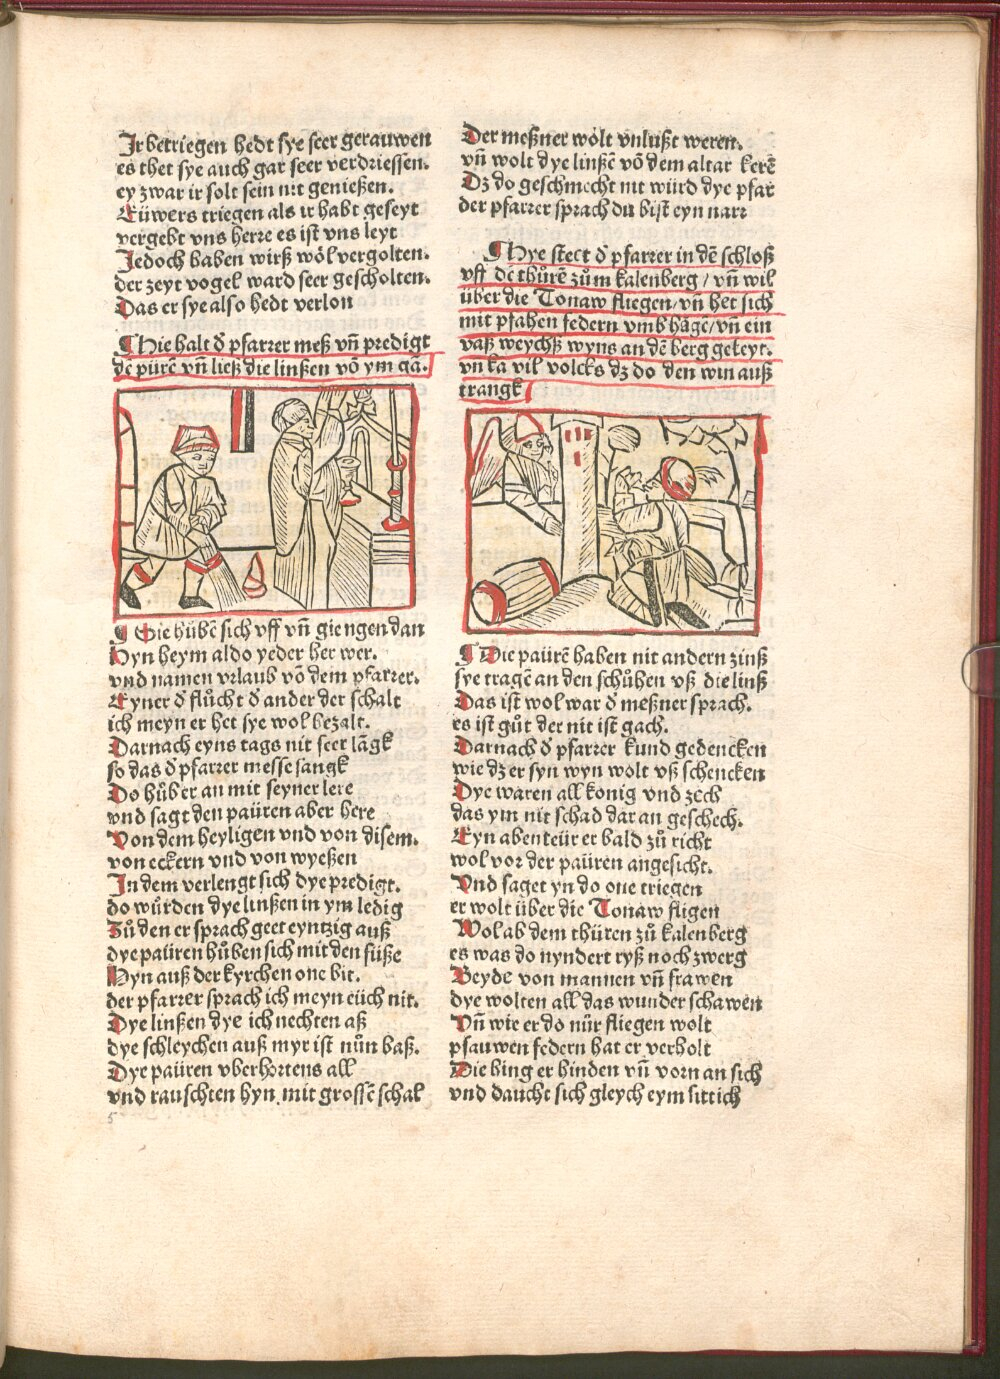 Ir betriegen hedt sye seer gerauwen
es thet sye auch gar seer verdriessen.
ey zwar ir solt sein nit genießen.
Eüwers triegen als ir habt geseyt
vergebt vns herre es ist vns leyt
Jedoch haben wirß wöl vergolten.
der zeyt vogel ward seer gescholten.
Das er sye also hedt verlon
¶ Hie halt d̕ pfarrer meß vn̄ predigt
dē pürē vn̄ ließ die linßen vō ym gā.
¶ Sie hübē sich vff vn̄ giengen dan
Hyn heym aldo yeder her wer.
vnd namen vrlaub vō dem pfarrer.
Eyner d̕ flücht d̕ ander der schalt
ich meyn er het sye wol bezalt.
Darnach eyns tags nit seer lāgk
so das d̕ pfarrer messe sangk
Do hůb er an mit seyner lere
vnd sagt den paüren aber here
Von dem heyligen vnd von disem.
von eckern vnd von wyeßen
In dem verlengt sich dye predigt.
do würden dye linßen in ym ledig
Zů den er sprach geet eyntzig auß
dye paüren hůben sich mit den füße
Hyn auß der kyrchen one bit.
der pfarrer sprach ich meyn eüch nit.
Dye linßen dye ich nechten aß
dye schleychen auß myr ist nůn baß.
Dye paüren vberhortens all
vnd rauschten hyn mit grossē schal
5
Der meßner wolt vnlußt weren.
vn̄ wolt dye linßē vō dem altar kerē
Dz do geschmecht nit würd dye pfar
der pfarrer sprach du bist eyn narr
¶ Hye steet d̕ pfarrer in dē schloß
vff dē thürē zům kalenberg / vn̄ wil
über die Tonaw fliegen / vn̄ het sich
mit pfahen federn vmb hāgē / vn̄ ein
vaß weychß wyns an dē berg geleyt.
vn ka vil volcks dz do den win auß
trangk
¶ Die paürē haben nit andern zinß
sye tragē an den schůhen vß die linß
Das ist wol war d̕ meßner sprach.
es ist gůt der nit ist gach.
Darnach d̕ pfarrer kund gedencken
wie dz er syn wyn wolt vß schencken
Dye waren all konig vnd zech
das ym nit schad dar an geschech.
Eyn abenteür er bald zů richt
wol vor der paüren angesicht.
Vnd saget yn do one triegen
er wolt über die Tonaw fligen
Wol ab dem thüren zů kalenberg
es was do nyndert ryß noch zwerg
Beyde von mannen vn̄ frawen
dye wolten all das wunder schawen
Vn̄ wie er do nür fliegen wolt
pfauwen federn hat er verholt
Die hing er hinden vn̄ vorn an sich
vnd daucht sich gleych eym sittich